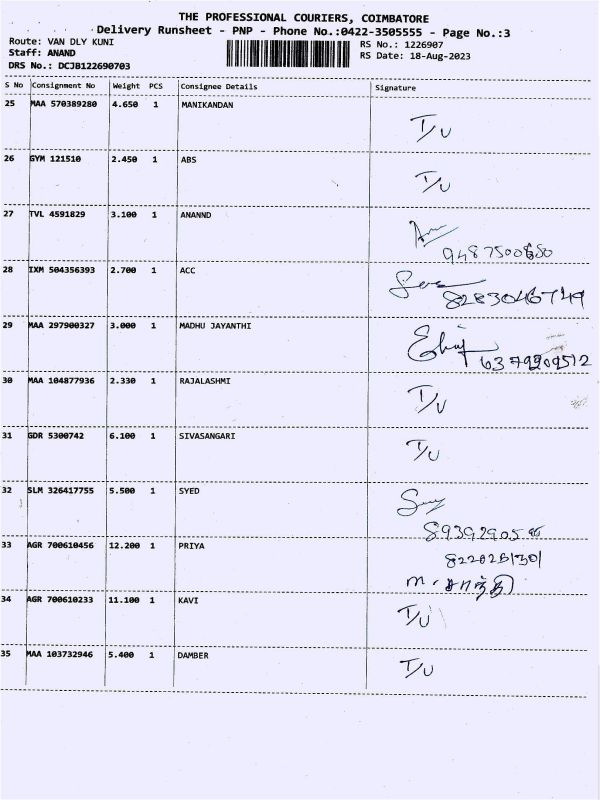 THE PROFESSIONAL COURIERS, COIMBATORE
Delivery Runsheet - PNP - Phone No.:0422-3505555 - Page No.:3
Route: VAN DLY KUNI RS No.: 1226907
Staff: ANAND RS Date: 18-Aug-2023
DRS No.: DCJB122690703
S No Consignment No Weight PCS Consignee Details Signature
25 MAA 570389280 4.650 1 MANIKANDAN T/U
26 GYM 121510 2.450 1 ABS T/U
27 TVL 4591829 3.100 1 ANANND
28 IXM 504356393 2.700 1 ACC
29 MAA 297900327 3.000 1 MADHU JAYANTHI
6379209512
30 MAA 104877936 2.330 1 RAJALASHMI T/U
31 GDR 5300742 6.100 1 SIVASANGARI T/U
32 SLM 326417755 5.500 1 SYED
33 AGR 700610456 12.200 1 PRIYA
34 AGR 700610233 11.100 1 KAVI T/U
35 MAA 103732946 5.400 1 DAMBER T/U